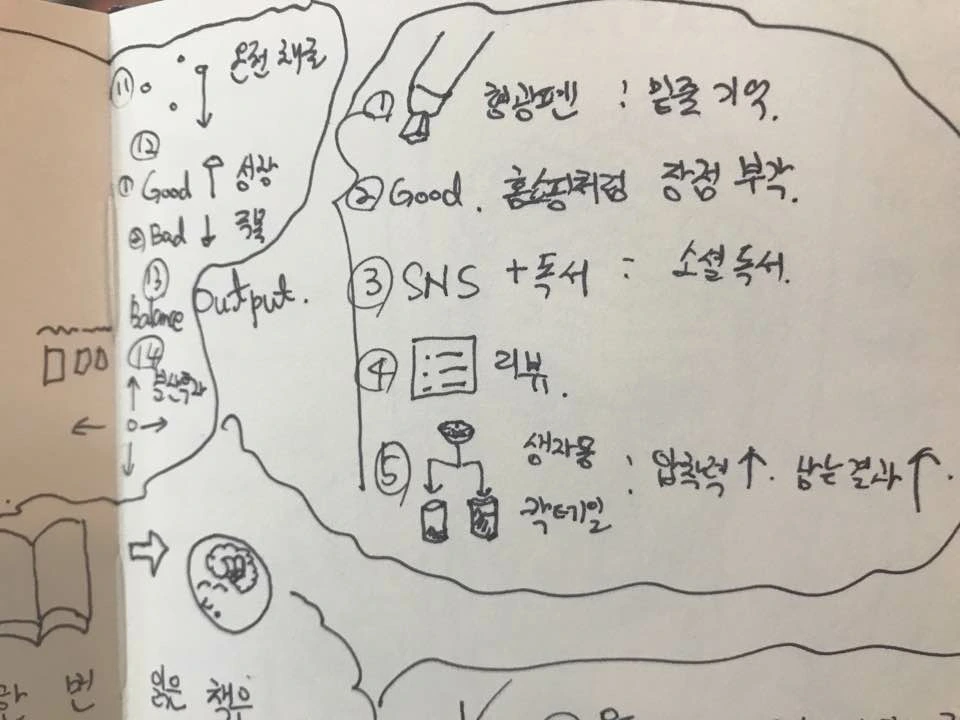 ⑪ 온전 채굴
⑫
① Good ↑ 성장
② Bad ↓ 극복
⑬
Balance
⑭
분산투자
Output.
① 형광펜 : 밑줄 기억.
② Good. 홈쇼핑처럼 장점 부각.
③ SNS + 독서 : 소셜 독서.
④ 리뷰.
⑤ 생자몽 : 압착력 ↑. 남는 결과 ↑.
칵테일
번
읽은 책의